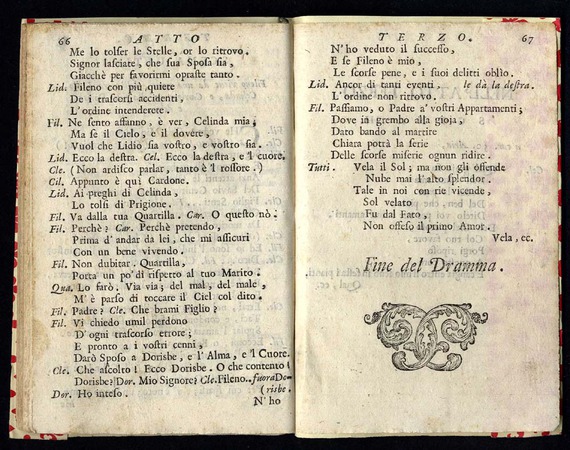 66 ATTO
Me lo tolser le Stelle, or lo ritrovo.
Signor lasciate, che sua Sposa sia,
Giacchè per favorirmi opraste tanto.
Lid. Fileno con più quiete
De i trascorsi accidenti,
L'ordine intenderete.
Fil. Ne sento affanno, è ver, Celinda mia;
Ma se il Cielo, e il dovere,
Vuol che Lidio sia vostro, e vostro sia.
Lid. Ecco la destra. Cel. Ecco la destra, e 'l cuore.
Cle. (Non ardisco parlar, tanto è 'l rossore.)
Cil. Appunto è quì Cardone.
Lid. Ai preghi di Celinda,
Lo tolsi di Prigione.
Fil. Va dalla tua Quartilla. Car. O questo nò.
Fil. Perchè? Car. Perchè pretendo,
Prima d'andar da lei, che mi assicuri
Con un bene vivendo.
Fil. Non dubitar. Quartilla,
Porta un po' di rispetto al tuo Marito.
Qua. Lo farò. Via via; del mal, del male,
M' è parso di toccare il Ciel col dito.
Fil. Padre? Cle. Che brami Figlio?
Fil. Vi chiedo umil perdono
D' ogni trascorso errore;
E pronto a i vostri cenni,
Darò Sposo a Dorisbe, e l' Alma, e 'l Cuore.
Cle. Che ascolto! Ecco Dorisbe. O che contento!
Dorisbe? Dor. Mio Signore? Cle. Fileno.. fuora Do-
Dor. Ho inteso. (risbe.
N' ho
TERZO. 67
N' ho veduto il successo,
E se Fileno è mio,
Le scorse pene, e i suoi delitti oblìo.
Lid. Ancor di tanti eventi le dà la destra.
L' ordine non ritrovo.
Fil. Passiamo, o Padre a' vostri Appartamenti;
Dove in grembo alla gioja,
Dato bando al martire
Chiara potrà la serie
Delle scorse miserie ognun ridire.
Tutti. Vela il Sol; ma non gli offende
Nube mai l' alto splendor.
Tale in noi con rie vicende,
Sol velato
Fu dal Fato,
Non offeso il primo Amor.
Vela, ec.
Fine del Dramma.